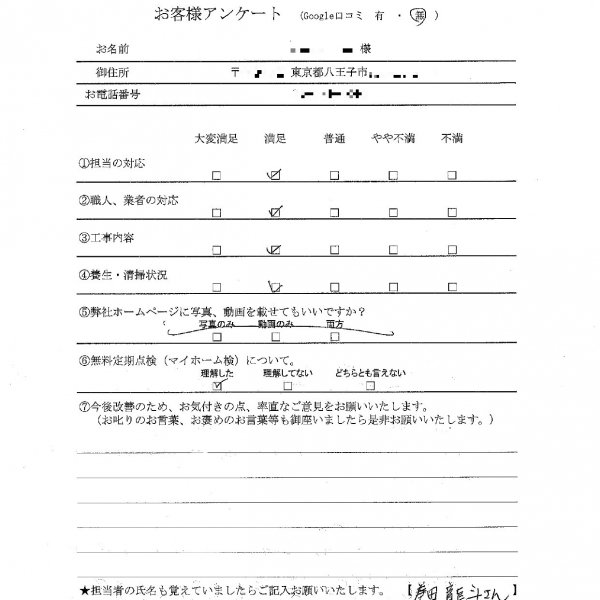 お客様アンケート (Google口コミ 有 ・ 無 )
お名前 様
御住所 〒 東京都八王子市
お電話番号
大変満足 満足 普通 やや不満 不満
①担当の対応
②職人、業者の対応
③工事内容
④養生・清掃状況
⑤弊社ホームページに写真、動画を載せてもいいですか?
写真のみ 動画のみ 両方
⑥無料定期点検（マイホーム検）について。
理解した 理解してない どちらとも言えない
⑦今後改善のため、お気付きの点、率直なご意見をお願いいたします。
（お叱りのお言葉、お褒めのお言葉等も御座いましたら是非お願いいたします。）
★担当者の氏名も覚えていましたらご記入お願いいたします。 【 龍斗さん】